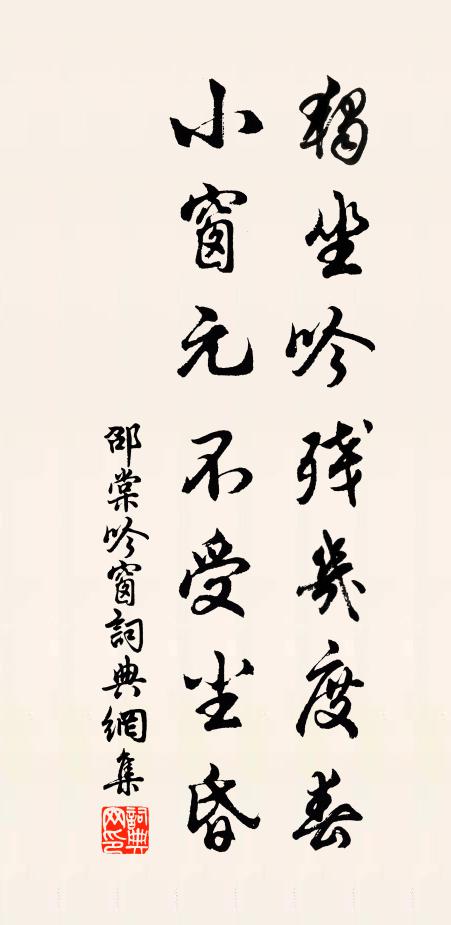 獨坐吟殘幾度春
小窗元不受尘昏
邵棠吟窗詞典網集
詞典网印